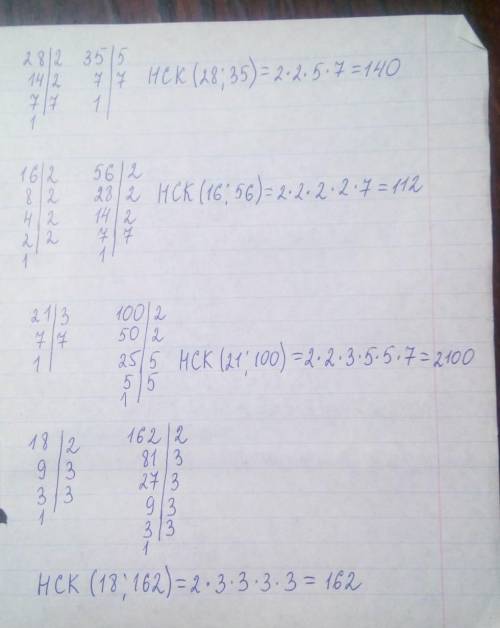 28|2 35|5
14|2 7|7 НСК (28; 35) = 2·2·5·7 = 140
7|7 1
1
16|2 56|2
8|2 28|2 НСК (16; 56) = 2·2·2·2·7 = 112
4|2 14|2
2|2 7|7
1 1
21|3 100|2
7|7 50|2
1 25|5 НСК (21; 100) = 2·2·3·5·5·7 = 2100
5|5
1
18|2 162|2
9|3 81|3
3|3 27|3
1 9|3
3|3
1
НСК (18; 162) = 2·3·3·3·3 = 162